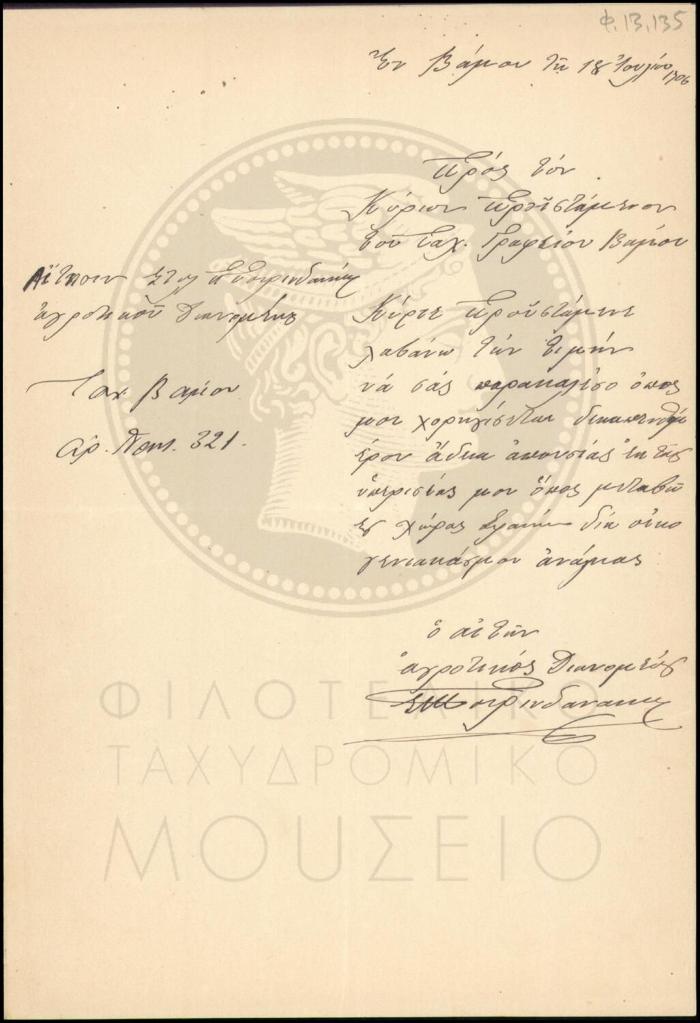 Φ.13,135
Ἐν Βάμου τῇ 18 Ἰουλίου 1906
Πρὸς τὸν
Κύριον Προϊστάμενον
τοῦ Ταχ. Γραφείου Βάμου
Αἴτησιν
ἀγροτικοῦ Διανομέως
Ταχ. Βάμου
Ἀρ. Πρωτ. 321.
Κύριε Προϊστάμενε
λαβάνω τὴν τιμὴν
νὰ σᾶς παρακαλέσο ὅπος
μοι χορηγίσεται δεκαπενθημ
έρον ἄδεια ἀπουσίας ἐκ τῆς
ὑπερισίας μου ὅπος μεταβῶ
χώρας Σφακίων διὰ οἰκο
γενιακάς μου ἀνάγκας
ὁ αἰτῶν
ἀγροτικός Διανομεύς
ΦΙΛΟΤΕΛΙΚΟ
ΤΑΧΥΔΡΟΜΙΚΟ
ΜΟΥΣΕΙΟ